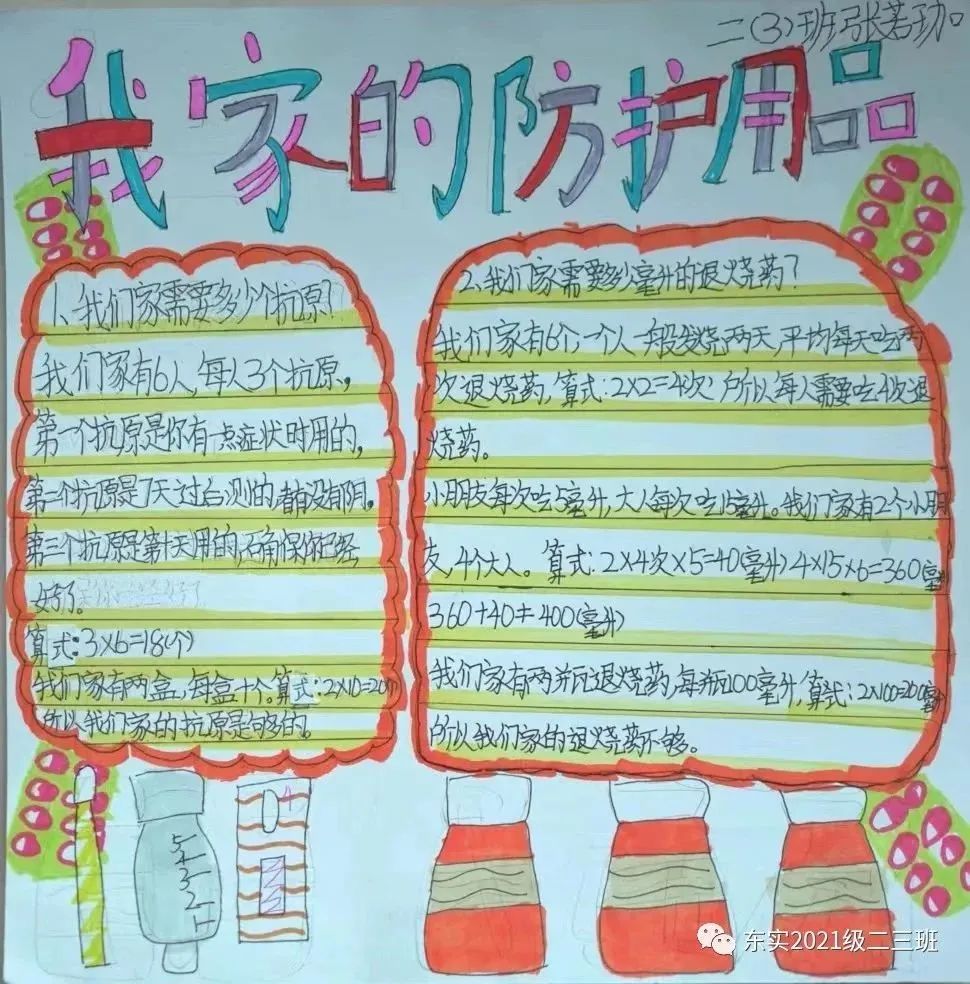 二(3)班张若玏
我家的防护用品
1、我们家需要多少个抗原?
我们家有6人,每人3个抗原,
第一个抗原是你有一点症状时用的,
第二个抗原是7天过后测的,看有没有阴。
第三个抗原是第十天用的,确保你已经
好了。
算式:3×6=18(个)
我们家有两盒,每盒十个。算式:2×10=20(个)
所以我们家的抗原是够多的。
2、我们家需要多少毫升的退烧药?
我们家有6个,一个人一般发烧两天,平均每天吃两
次退烧药,算式:2×2=4(次)所以每人需要吃4次退
烧药。
小朋友每次吃5毫升,大人每次吃15毫升。我们家有2个小朋
友,4个大人。算式:2×4次×5=40(毫升)4×15×6=360(毫升)
360+40=400(毫升)
我们家有两瓶退烧药,每瓶100毫升,算式:2×100=200(毫升)
所以我们家的退烧药不够。
5
4
3
2
1
东实2021级二三班